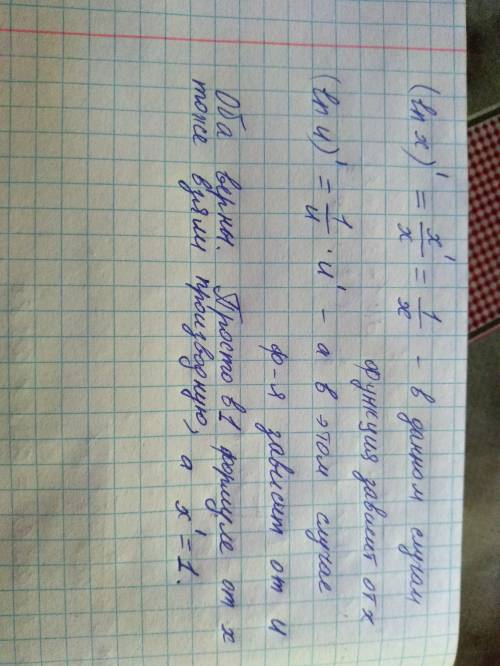 (ln x)' = x'/x = 1/x - в данном случаи
функция зависит от x
(ln u)' = 1/u · u' - а в этом случае
ф-я зависит от u
Оба верны. Просто в 1 формуле от x
тоже взяли производную, а x' = 1.